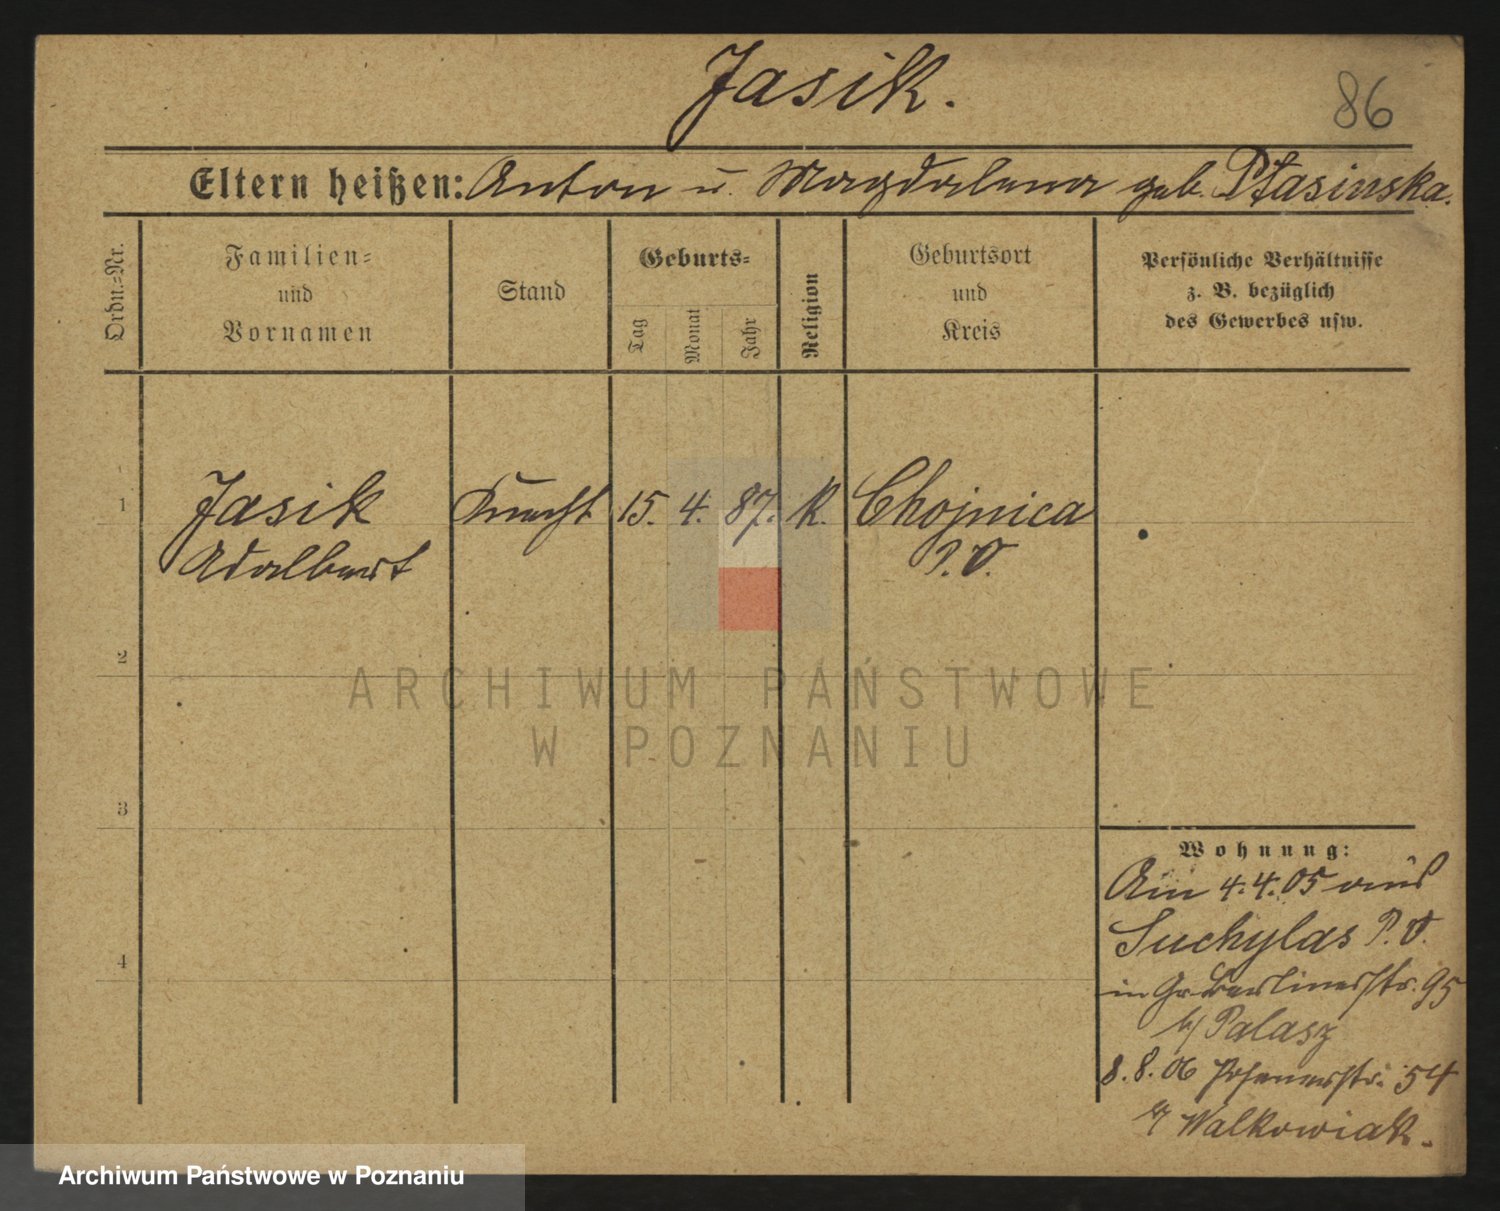 Jasik.
86
Eltern heißen: Anton u. Magdalena geb. Ptasinska.
Ordn.-Nr.
Familien-
und
Vornamen
Stand
Geburts-
Tag
Monat
Jahr
Religion
Geburtsort
und
Kreis
Persönliche Verhältnisse
z. B. bezüglich
des Gewerbes usw.
1
Jasik Knecht 15. 4. 87. K. Chojnica
Adalbert P. O.
2
ARCHIWUM PAŃSTWOWE
W POZNANIU
3
Wohnung:
Am 4.4.05 aus
Suchylas P. O.
4
in Gr. Berlinerstr. 95
b/ Palasz
8.8.06 Posenerstr. 54
b/ Walkowiak.
Archiwum Państwowe w Poznaniu